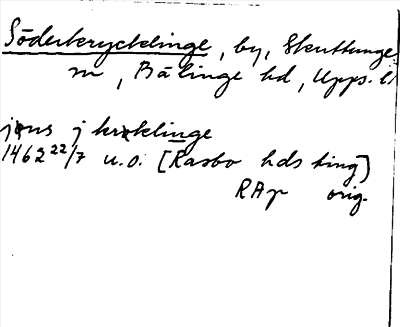 Söderkrycklinge, by, Skuttunge
sn, Bälinge hd, Upps. l.
jøns j krøklinge
1462 22/7 u.o. [Rasbo hds ting]
RAp orig.